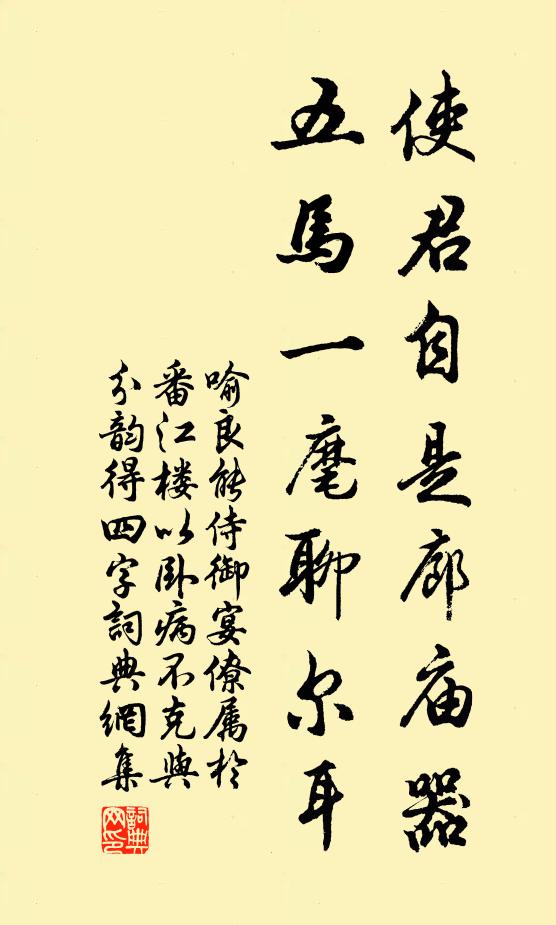 使君自是廊庙器
五馬一麾聊尔耳
喻良能侍御宴僚属於
番江楼以卧病不克與
分韵得四字詞典網集
詞典網印